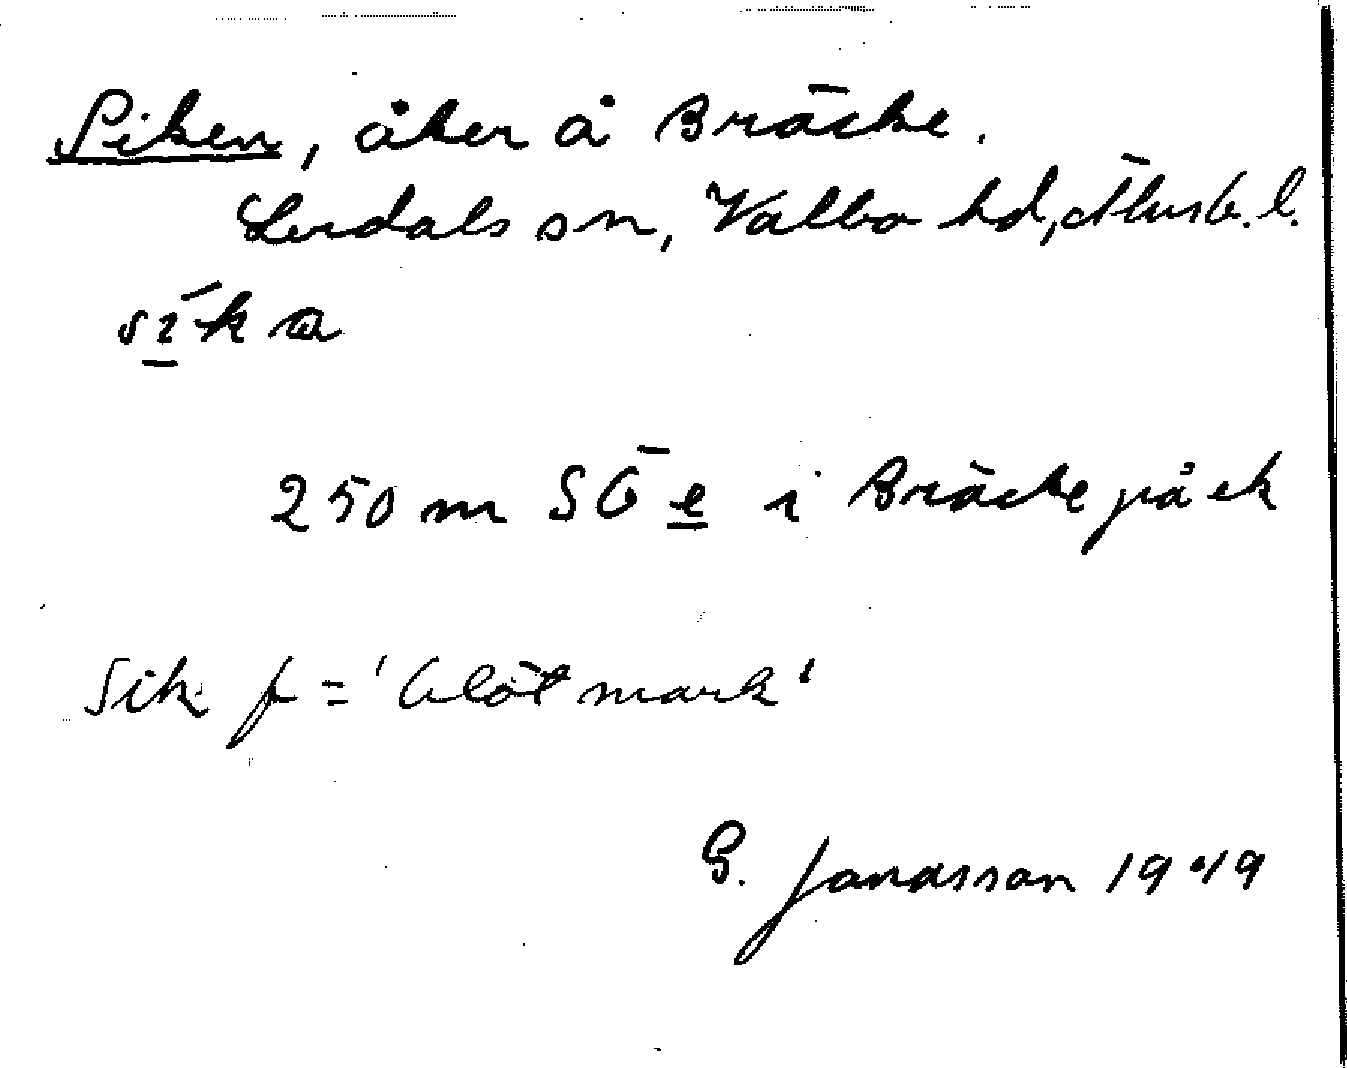 Siken, åker å Bräcke.
Lerdals sn, Valbo hd, Älvsb. l.
sīka
250 m SÖ e i Bräcke på ek
Sik f = 'blöt mark'
G. Jonasson 1949